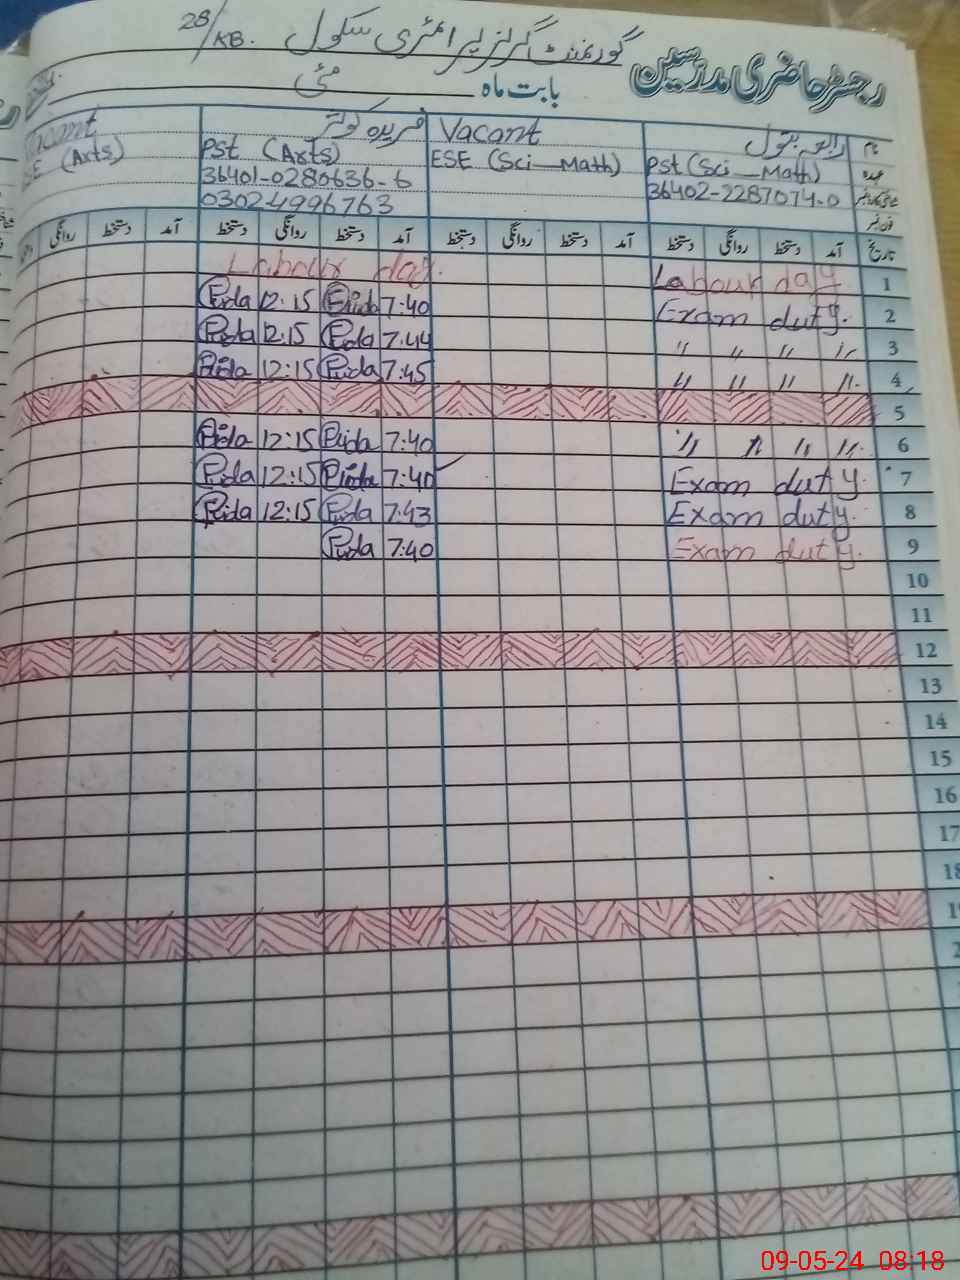 28/KB. گورنمنٹ گرلز پرائمری سکول رجسٹر حاضری مدرسین
بابت ماہ مئی
نام رابعہ بتول Vacant فریدہ کوثر Vacant
عہدہ Pst (Sci-Math) ESE (Sci-Math) Pst (Arts) ESE (Arts)
36402-2287074-0 36401-0280636-6
فون نمبر 03024996763
تاریخ آمد دستخط روانگی دستخط آمد دستخط روانگی دستخط آمد دستخط روانگی دستخط آمد دستخط روانگی
1 Labour day. Labour day.
2 Exam duty. 7:40 Frida 12:15 Frida
3 〃 〃 〃 〃 7:44 Frida 12:15 Frida
4 〃 〃 〃 〃 7:45 Frida 12:15 Frida
5
6 〃 〃 〃 〃 7:40 Frida 12:15 Frida
7 Exam duty. 7:40 Frida 12:15 Frida
8 Exam duty. 7:43 Frida 12:15 Frida
9 Exam duty. 7:40 Frida
10
11
12
13
14
15
16
17
18
09-05-24 08:18